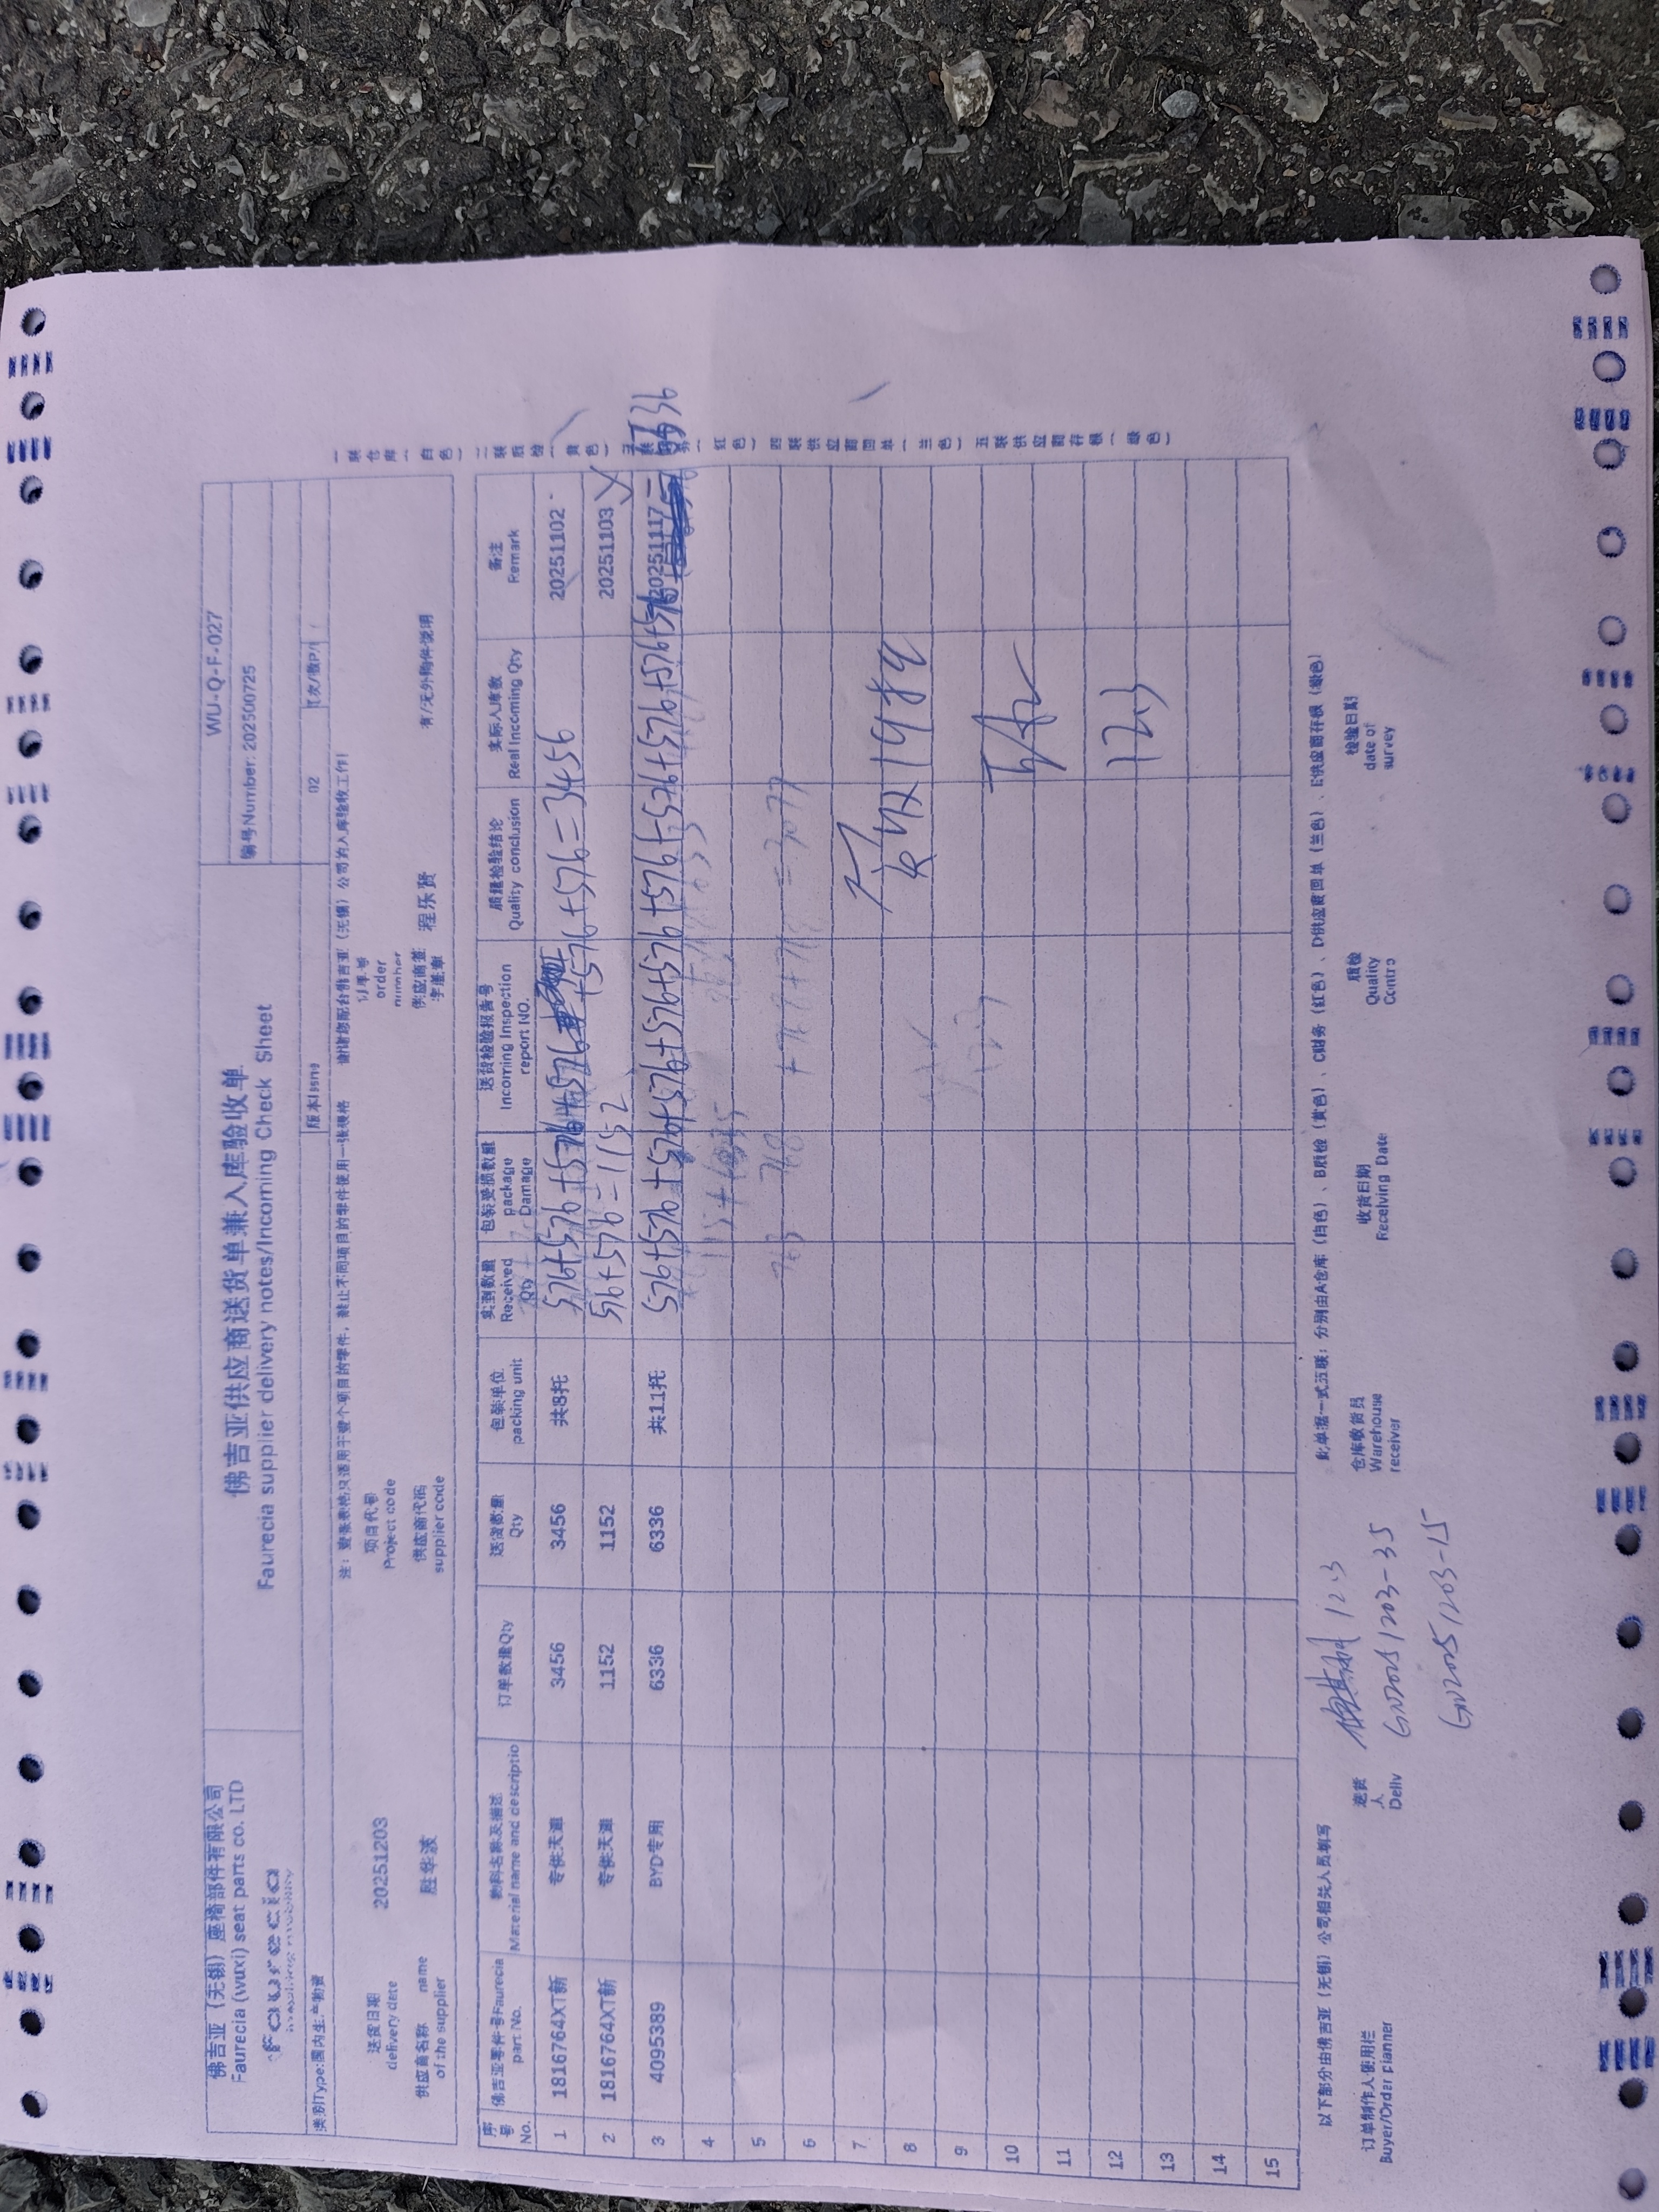 佛吉亚（无锡）座椅部件有限公司
Faurecia (wuxi) seat parts co. LTD
faurecia
佛吉亚供应商送货单兼入库验收单
Faurecia supplier delivery notes/Incoming Check Sheet
WU-Q-F-027
编号Number: 202500725
类别Type:国内生产物资
02
注：壹张表格只适用于壹个项目的零件，禁止不同项目的零件使用一张表格 谢谢您配合佛吉亚（无锡）公司的入库验收工作！
送货日期 delivery date 20251203
项目代号 Project code
订单号 order number
供应商名称 name of the supplier 胜华波
供应商代码 supplier code
程乐贤
序号 No. 佛吉亚零件号Faurecia part No. 物料名称及描述 Material name and descriptio 订单数量Qty 送货数量 Qty 包装单位 packing unit 实到数量 Received Qty 包装受损数量 package Damage 送货检验报告号 Incoming Inspection report NO. 质量检验结论 Quality conclusion 实际入库数 Real Incoming Qty 备注 Remark
1 1816764XT新 专供天津 3456 3456 共8托 576+576+576+576+576+576=3456 20251102
2 1816764XT新 专供天津 1152 1152 576+576=1152 20251103
3 4095389 BYD专用 6336 6336 共11托 576+576+576+576+576+576+576+576+576+576+576 20251117 6336
4
5
6
7
8 实收19托
9
10
11
12 12.3
13
14
15
一联仓库（白色）二联质检（黄色）三联财务（红色）四联供应商回单（兰色）五联供应商存根（绿色）
以下部分由佛吉亚（无锡）公司相关人员填写
此单据一式五联；分别由A仓库（白色）、B质检（黄色）、C财务（红色）、D供应商回单（兰色）、E供应商存根（绿色）
订单制作人使用栏 Buyer/Order planner
送货人 Deliv 12.3
仓库收货员 Warehouse receiver
收货日期 Receiving Date
质检 Quality Contro
检验日期 date of survey
GN20251203-35
GN20251203-15